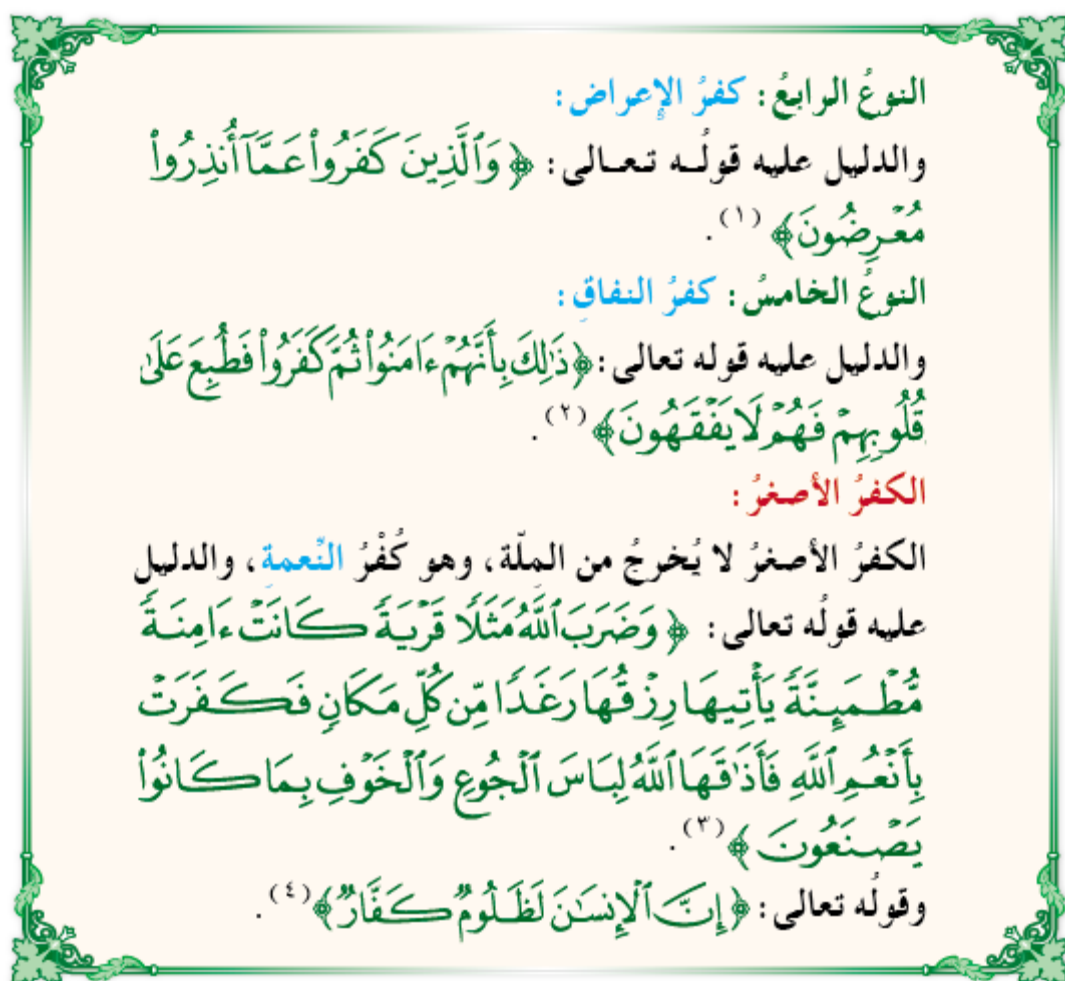 النوعُ الرابعُ: كفرُ الإعراض:
والدليل عليه قولُه تعالى: ﴿وَٱلَّذِينَ كَفَرُوا۟ عَمَّآ أُنذِرُوا۟
مُعْرِضُونَ﴾ (١).
النوعُ الخامسُ: كفرُ النفاقِ:
والدليل عليه قوله تعالى: ﴿ذَٰلِكَ بِأَنَّهُمْ ءَامَنُوا۟ ثُمَّ كَفَرُوا۟ فَطُبِعَ عَلَىٰ
قُلُوبِهِمْ فَهُمْ لَا يَفْقَهُونَ﴾ (٢).
الكفرُ الأصغرُ:
الكفرُ الأصغرُ لا يُخرجُ من الملّة، وهو كُفْرُ النِّعمةِ، والدليل
عليه قولُه تعالى: ﴿وَضَرَبَ ٱللَّهُ مَثَلًا قَرْيَةً كَانَتْ ءَامِنَةً
مُّطْمَئِنَّةً يَأْتِيهَا رِزْقُهَا رَغَدًا مِّن كُلِّ مَكَانٍ فَكَفَرَتْ
بِأَنْعُمِ ٱللَّهِ فَأَذَٰقَهَا ٱللَّهُ لِبَاسَ ٱلْجُوعِ وَٱلْخَوْفِ بِمَا كَانُوا۟
يَصْنَعُونَ﴾ (٣).
وقولُه تعالى: ﴿إِنَّ ٱلْإِنسَٰنَ لَظَلُومٌ كَفَّارٌ﴾ (٤).